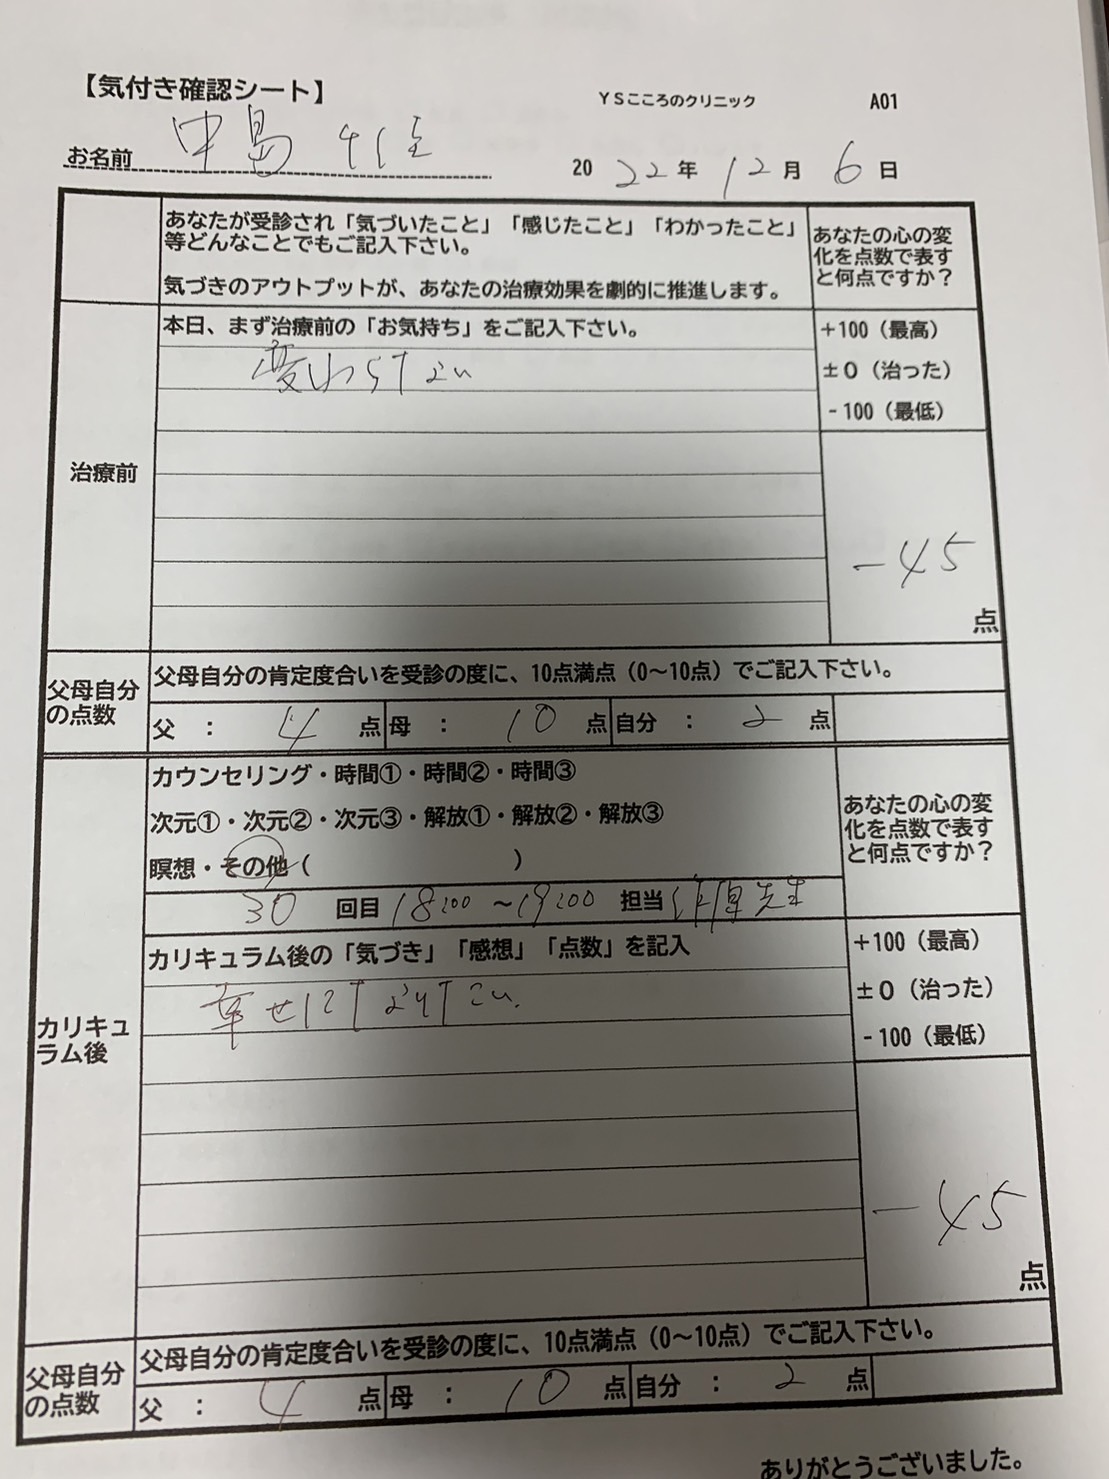 【気付き確認シート】
YSこころのクリニック
A01
お名前 中島
2022年12月6日
あなたが受診され「気づいたこと」「感じたこと」「わかったこと」
等どんなことでもご記入下さい。
気づきのアウトプットが、あなたの治療効果を劇的に推進します。
あなたの心の変
化を点数で表す
と何点ですか?
治療前
本日、まず治療前の「お気持ち」をご記入下さい。
変わらない
+100(最高)
±0(治った)
-100(最低)
-45
点
父母自分
の点数
父母自分の肯定度合いを受診の度に、10点満点(0~10点)でご記入下さい。
父 : 4 点 母 : 10 点 自分 : 2 点
カリキュ
ラム後
カウンセリング・時間①・時間②・時間③
次元①・次元②・次元③・解放①・解放②・解放③
瞑想・その他( )
30 回目 18:00 ~19:00 担当 先生
あなたの心の変
化を点数で表す
と何点ですか?
カリキュラム後の「気づき」「感想」「点数」を記入
幸せになりたい。
+100(最高)
±0(治った)
-100(最低)
-45
点
父母自分
の点数
父母自分の肯定度合いを受診の度に、10点満点(0~10点)でご記入下さい。
父 : 4 点 母 : 10 点 自分 : 2 点
ありがとうございました。